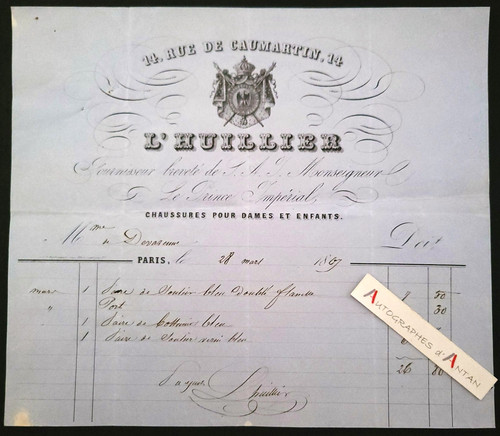 14. RUE DE CAUMARTIN. 14
L'HUILLIER
Fournisseur breveté de S. A. I. Monseigneur
Le Prince Impérial,
CHAUSSURES POUR DAMES ET ENFANTS.
Mme Doit
de
PARIS, le 28 mars 1867
mars 1 Paire de Soulier bleu Doublé flanelle 9 50
" Port 30
1 Paire de Bottines bleu
1 Paire de Soulier verni bleu
26 80
Lhuillier
AUTOGRAPHES d'ANTAN